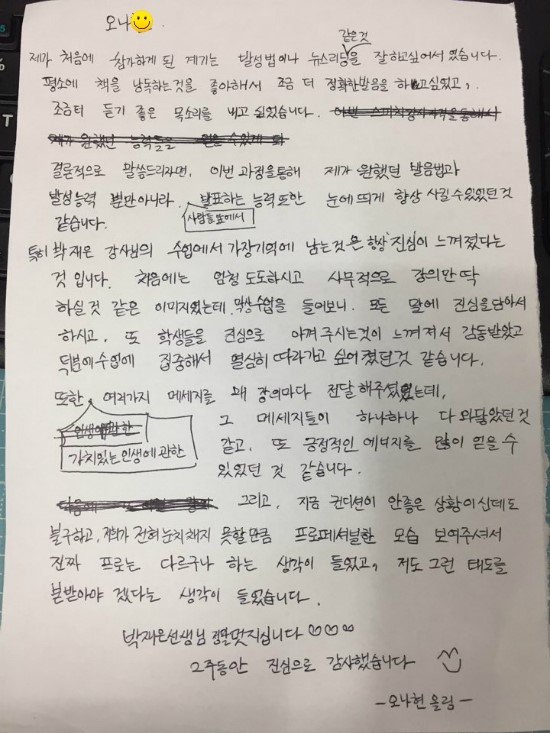 오나
같은것
제가 처음에 참가하게 된 계기는 발성법이나 뉴스리딩을 잘하고싶어서 였습니다.
평소에 책을 낭독하는것을 좋아해서 조금 더 정확한발음을 하고싶었고,
조금더 듣기 좋은 목소리를 내고 싶었습니다.
결론적으로 말씀드리자면, 이번 과정을통해 제가 원했던 발음법과
발성능력 뿐만아니라, 발표하는 능력또한 눈에 띄게 향상 시킬수있었던것
사람들앞에서
같습니다.
특히 박재은 강사님의 수업에서 가장기억에 남는것은 항상 진심이 느껴졌다는
것 입니다. 처음에는 엄청 도도하시고 사무적으로 강의만 딱
하실것 같은 이미지였는데, 막상수업을 들어보니, 모든 말에 진심을담아서
하시고, 또 학생들을 진심으로 아껴 주시는것이 느껴져서 감동받았고
덕분에수업에 집중해서 열심히 따라가고 싶어 졌던것 같습니다.
또한, 여러가지 메세지를 매 강의마다 전달 해주셨었는데,
인생에관한
가치있는인생에 관한
그 메세지들이 하나하나 다 와닿았던것
같고, 또 긍정적인 에너지를 많이 얻을 수
있었던 것 같습니다.
그리고, 지금 컨디션이 안좋은 상황이신데도
불구하고, 저희가 전혀눈치채지 못할만큼 프로페셔널한 모습 보여주셔서
진짜 프로는 다르구나 하는 생각이 들었고, 저도 그런 태도를
본받아야 겠다는 생각이 들었습니다.
박재은선생님 정말멋지십니다 ♡♡♡
2주동안 진심으로 감사했습니다
-오나현 올림-
T